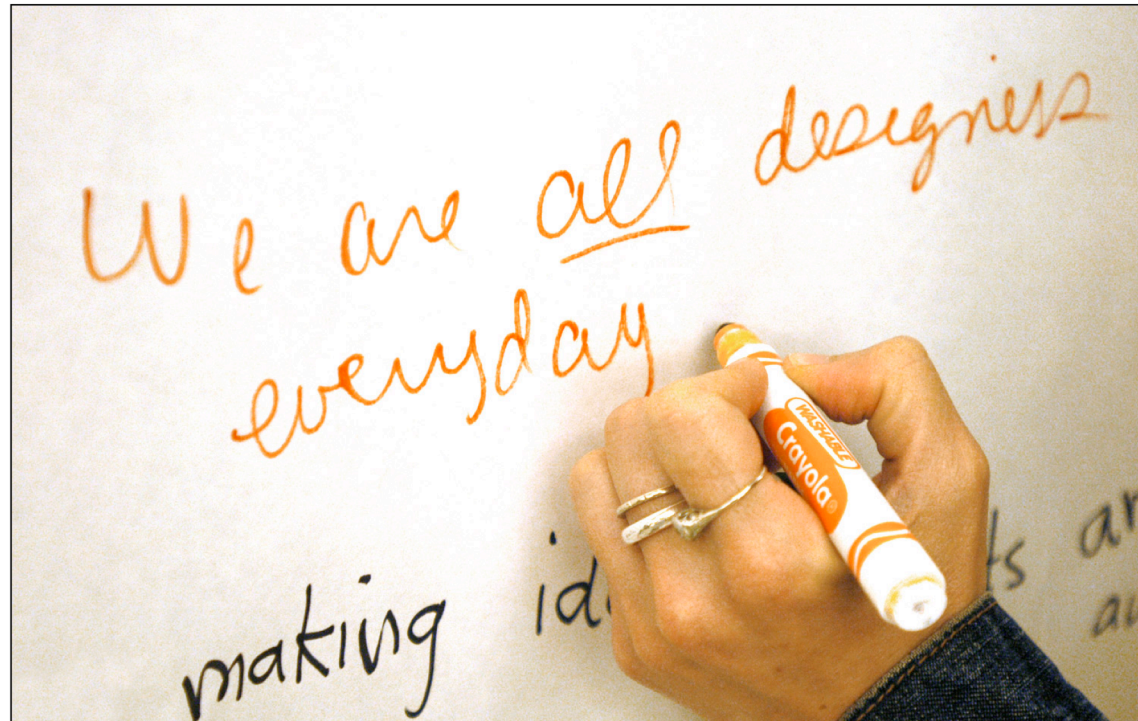 We are all designers
everyday
WASHABLE
Crayola®
making